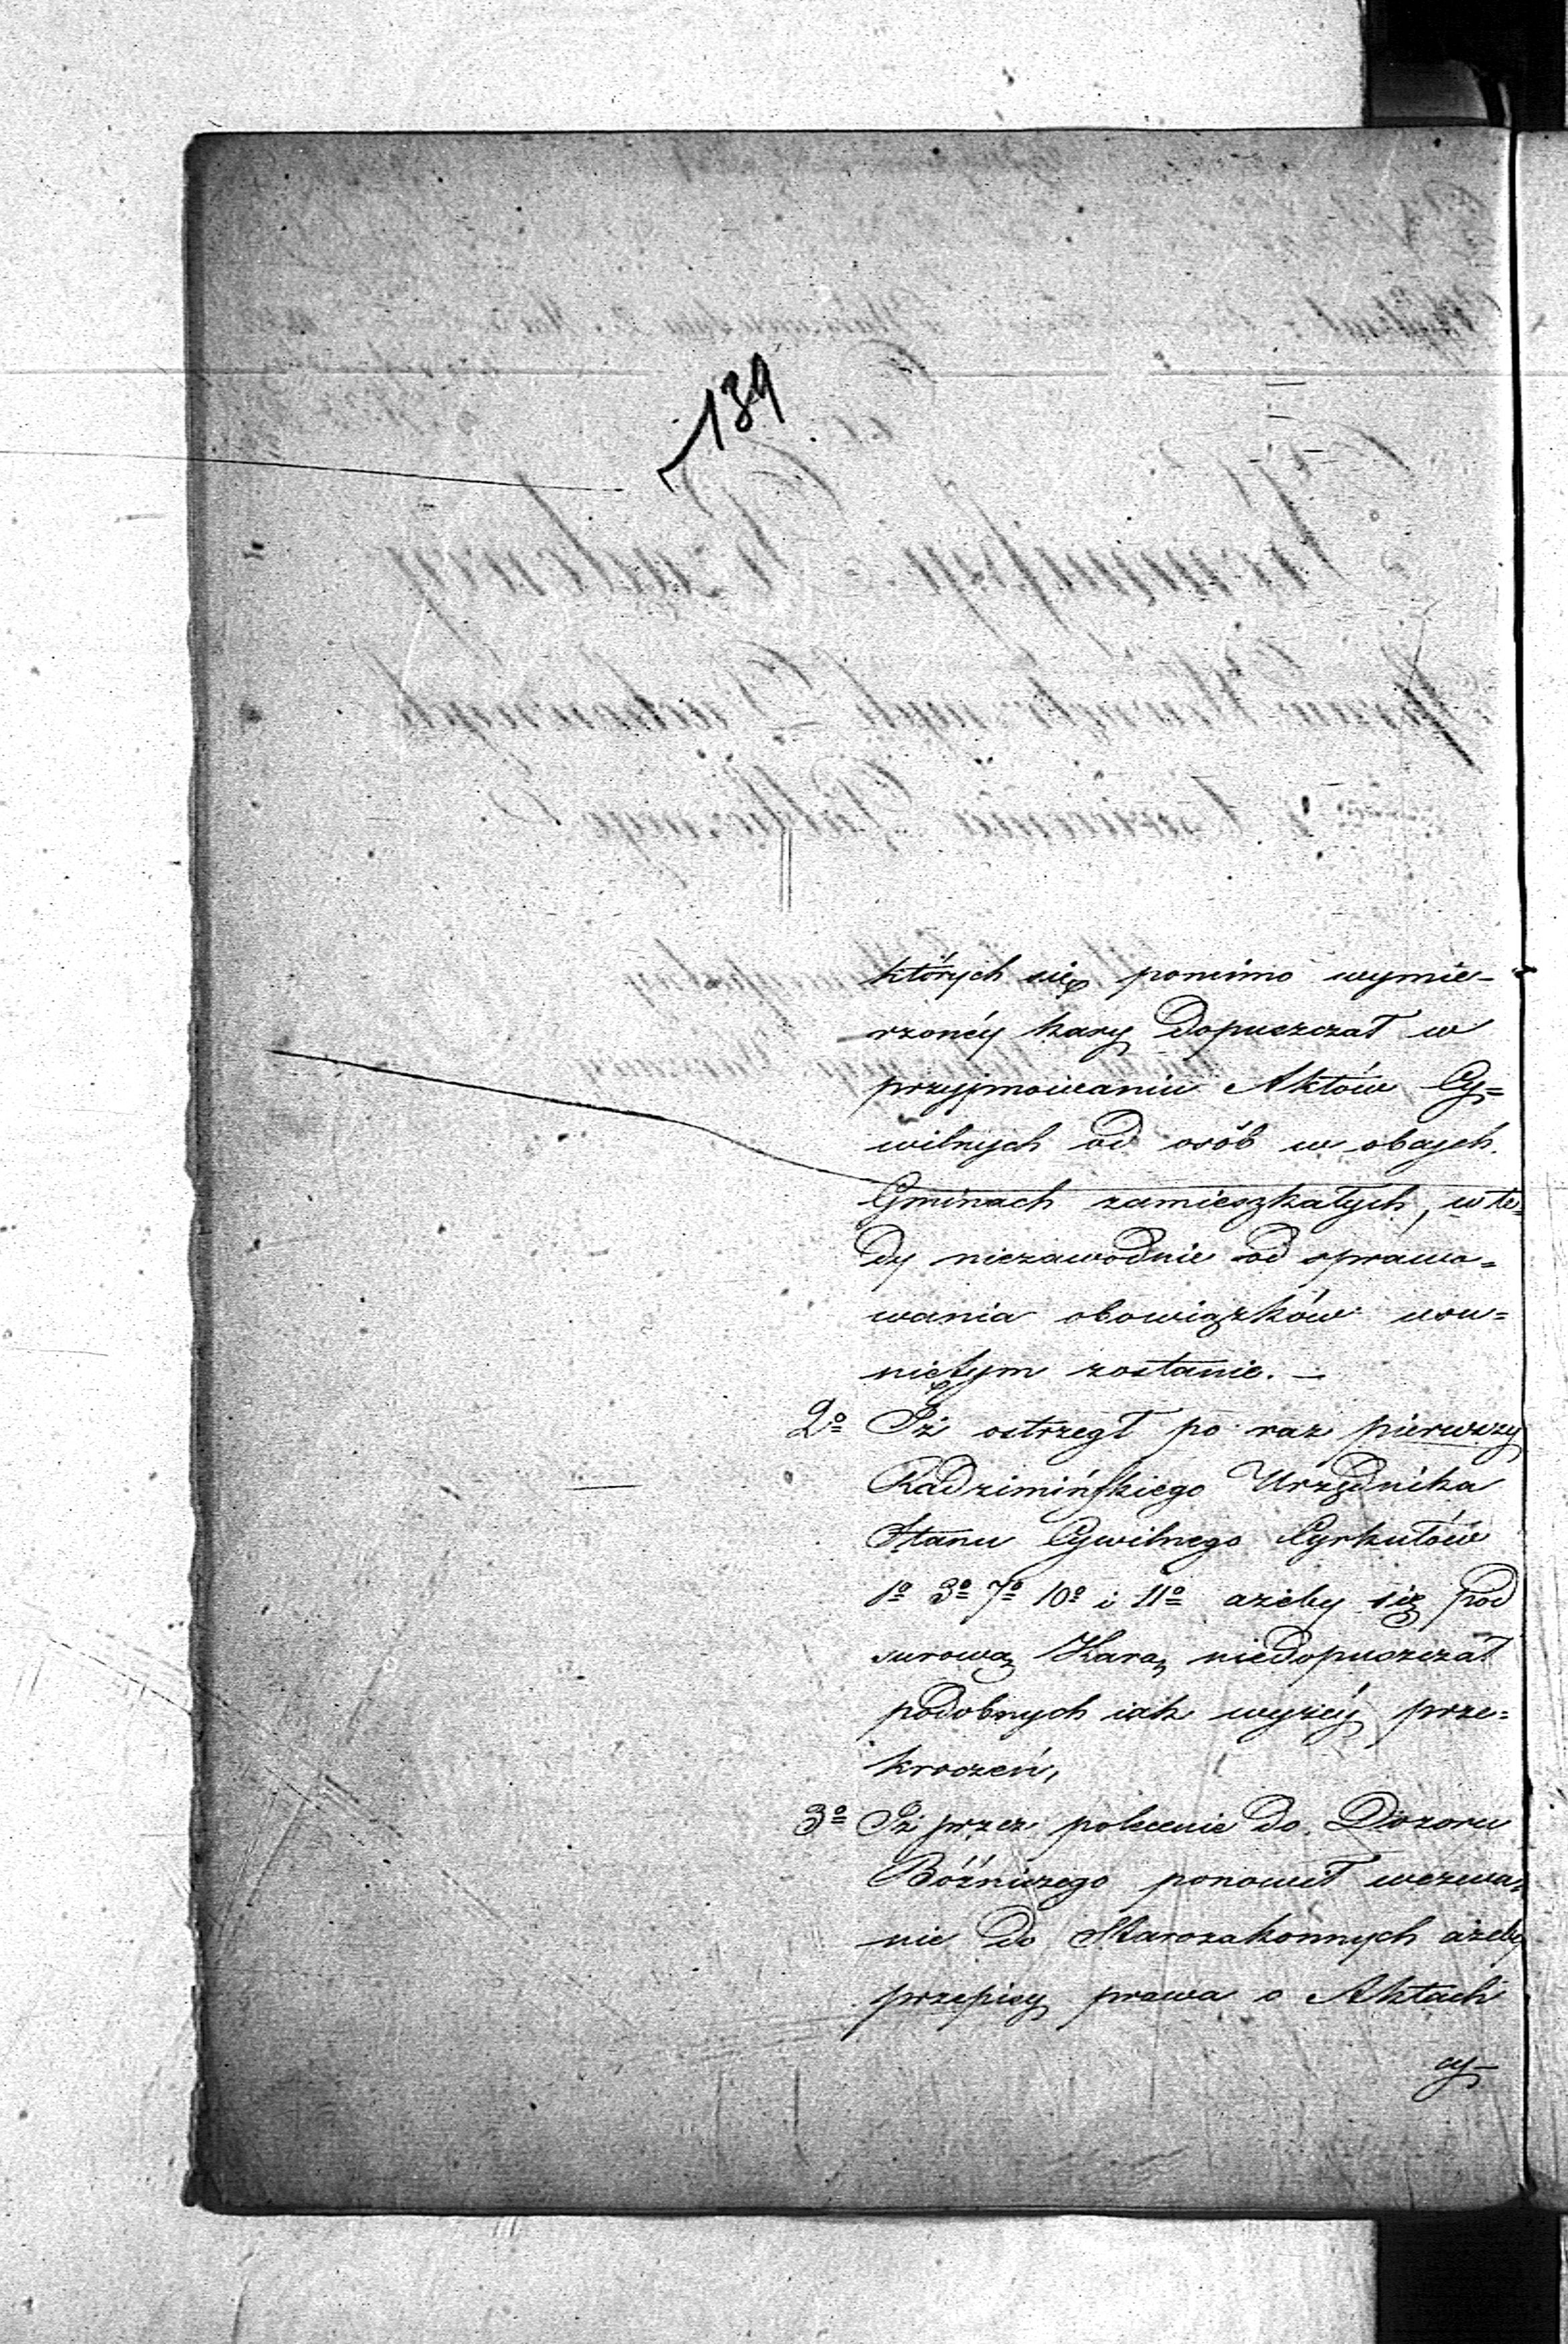 139
których się pomimo wymie-
rzonéy kary dopuszczał w
przyjmowaniu Aktów Cy=
wilnych od osób w obcych
Gminach zamieszkałych, wte=
dy niezawodnie od sprawo=
wania obowiązków usu=
niętym zostanie. —
2o Iż ostrzegł po raz pierwszy
Radzimińskiego Urzędnika
Stanu Cywilnego Cyrkułów
1o 3o 7o 10o i 11o ażeby się pod
surową Karą niedopuszczał
podobnych iak wyżéy prze=
kroczeń,
3o Iż przez polecenie do Dozoru
Bóźniczego ponowił wezwa=
nie do Starozakonnych ażeby
przepisy prawa o Aktach
cy-